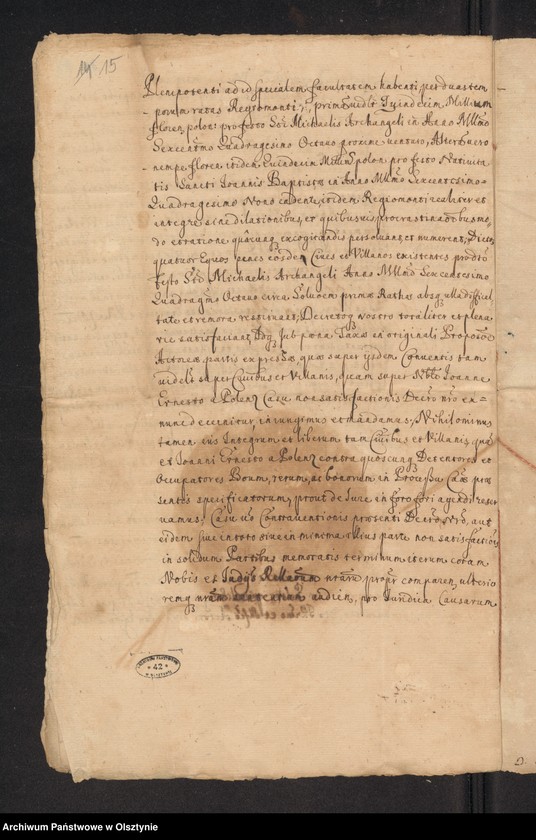 15
Plenipotenti ad id specialem facultatem habenti, per duas tem
porum ratas Regiomonti, primo videlt Quindecim Millium
floren polon: pro festo Sti Michaelis Archangeli in Anno Mllmo
Sexcentmo Quadragesimo Octavo proxime venturo, Altera vero
nempe floren itidem Quindecim Millium polon. pro festo Nativita
tis Sancti Joannis Baptistæ in Anno Mllmo Sexcentesimo
Quadragesimo Nono cadente, itidem Regiomonti realiter et
integre sine dilationibus, et quibusvis procrastinationibus mo
do et ratione quacunq excogitandis persolvant, et numerent,
quatuor Equos penes eosdem Cives et Villanos existentes pro
festo Sti Michaelis Archangeli Anno Mllmo Sexcentesimo
Quadragmo Octavo circa Solutem primæ Rathas absq ulla difficul
tate et remora restituant, Decretoq nostro totaliter et plena
rie satisfaciant, Idq sub pæna Taxæ in originali Propone
Actoreæ partis expressæ, quæ super ijsdem Conventis tam
videlt super Civibus et Villanis, quam super Nobli Joanne
Ernesto a Polenz Casu non satisfactionis Decro nro ex
nunc decernitur, iniungimus et mandamus, Nihilominus
tamen ius Integrum et liberum tam Civibus et Villanis, quam
et Joanni Ernesto a Polenz contra quoscunq Detentores et
Occupatores Bonum, rerum, ac bonorum in Processu Causæ præ
sentis specificatorum, prout de Iure in foro fori agendi reser
vamus, Casu vo Contraventionis præsenti Decro Nro, aut
eidem sive in toto sive in minima illius parte non satisfactionis
in solidum Partibus memoratis terminum iterum coram
Nobis et Iudijs Rellarum nrarum propr comparen, ulterio
remq nram audien, pro Iuridica Causarum
ARCHIWUM PAŃSTWOWE
42
W OLSZTYNIE
Archiwum Państwowe w Olsztynie